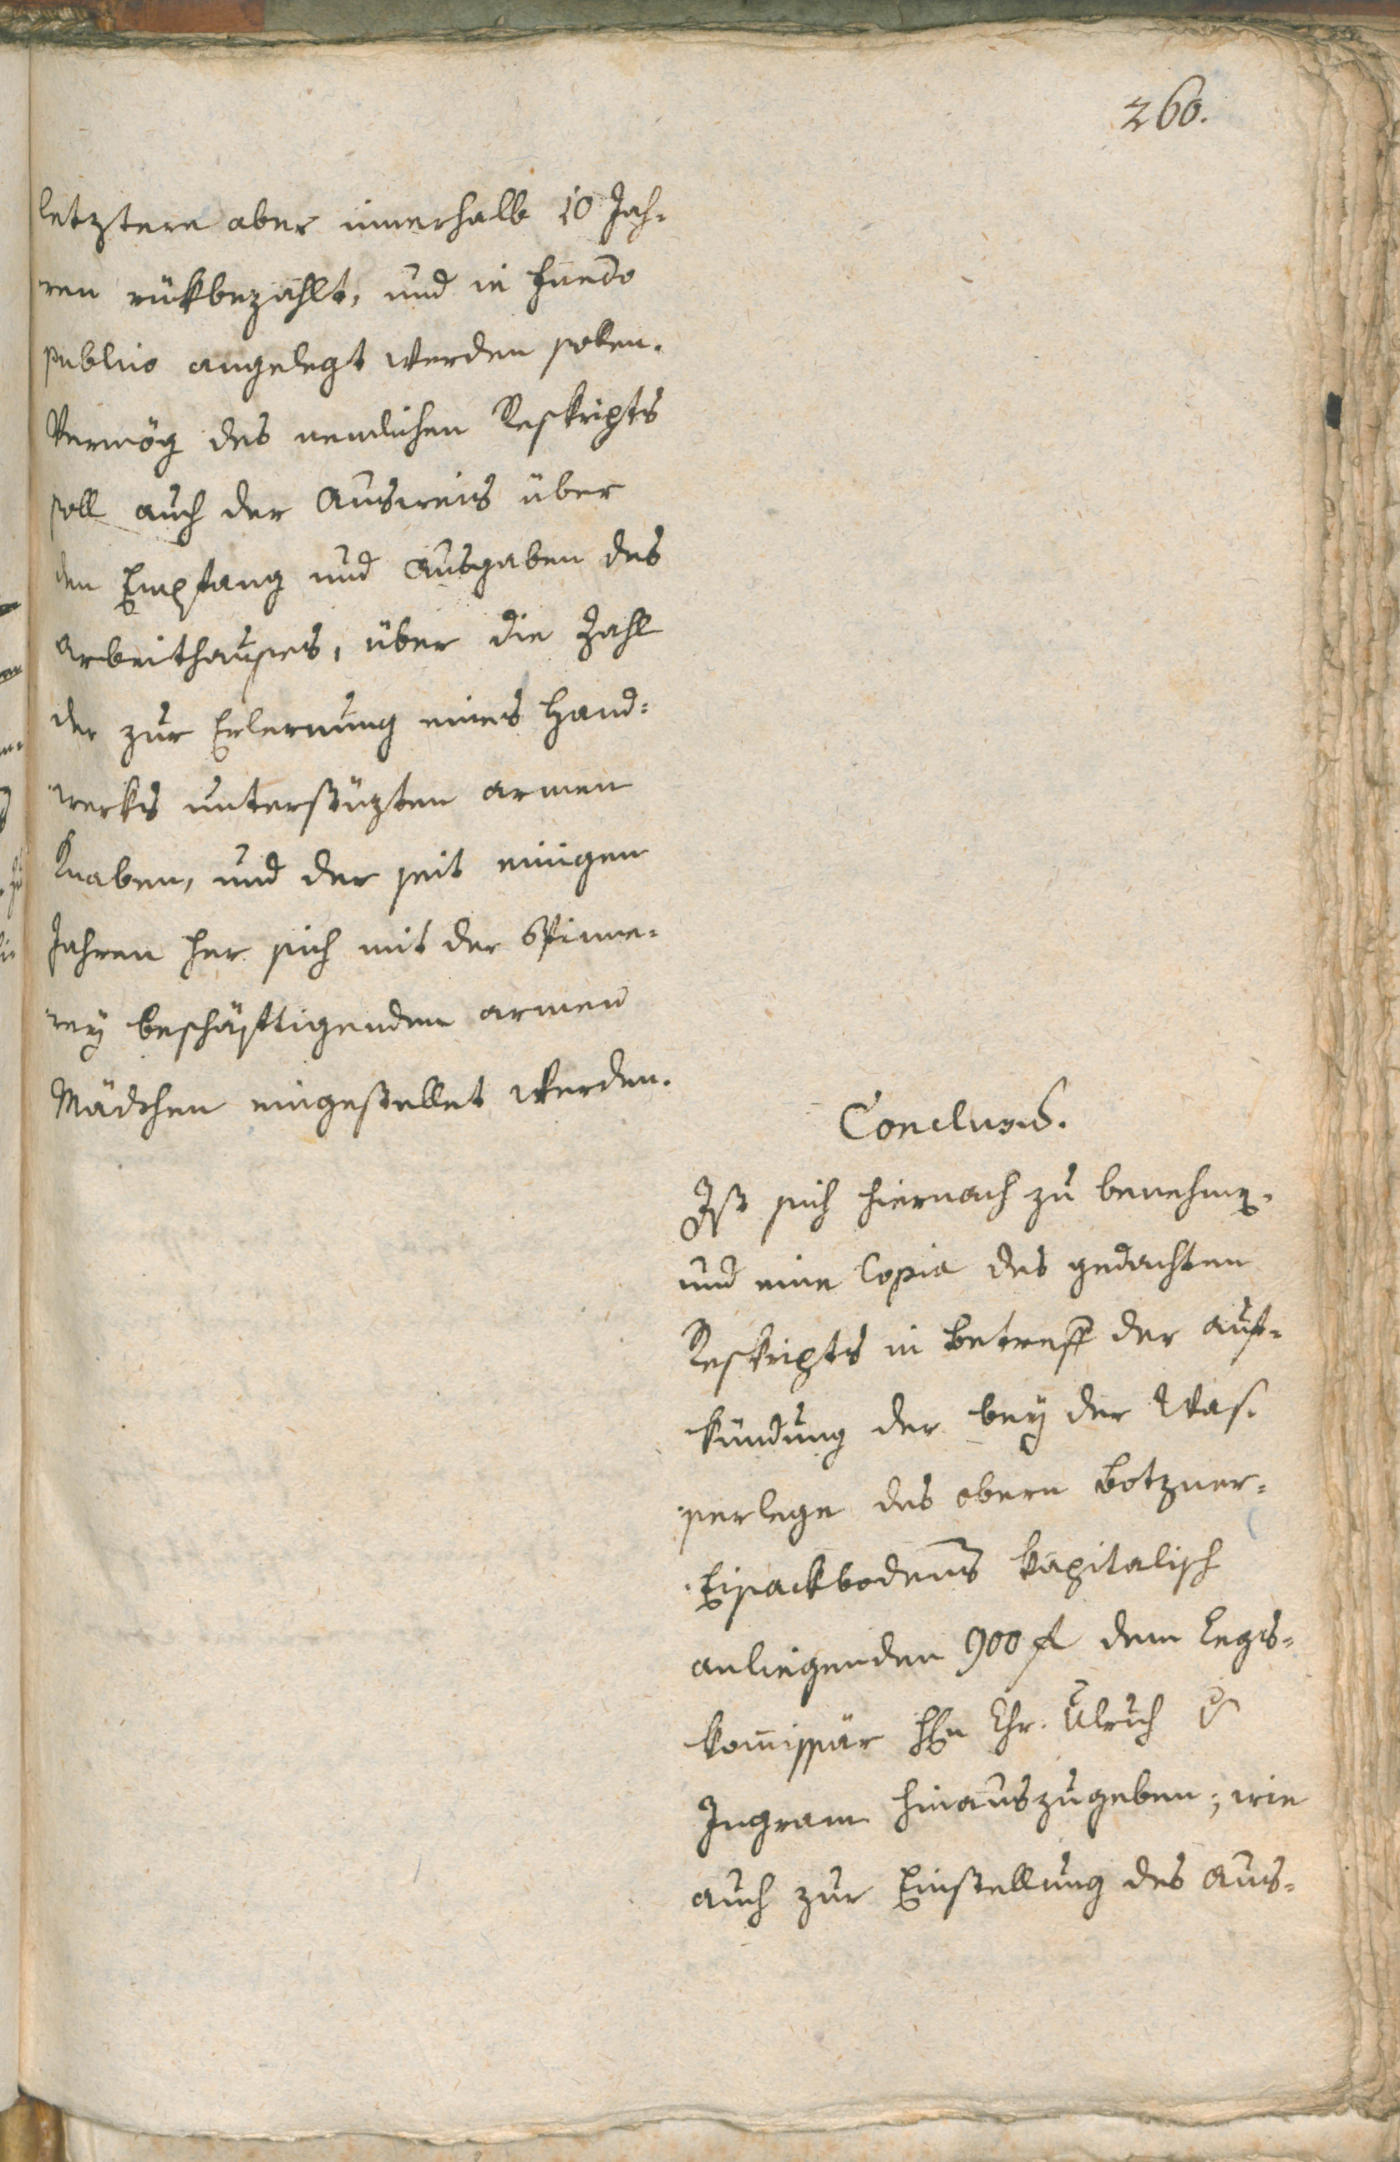 260.
letztere aber innerhalb 10 Jah-
ren rükbezahlt, und in fundo
publico angelegt werden sollen.
Vermög des nemlichen Reskripts
soll auch der Ausweis über
den Empfang und Ausgaben des
Arbeithauses, über die Zahl
der zur Erlernung eines Hand=
werks unterstüzten armen
Knaben, und der seit einigen
Jahren her sich mit der Spinne-
rey beschäftigenden armen
Mädchen eingestellet werden.
Conclusum.
Ist sich hiernach zu benehmen.
und eine Copia des gedachten
Reskripts in Betreff der Auf-
kündung der bey der Was-
serlege des obern Botzner=
Eisackbodens kapitalisch
anliegenden 900 f dem Legs-
kommissär Hhn Chr. Ulrich v
Ingram hinauszugeben; wie
auch zur Einstellung des Aus-